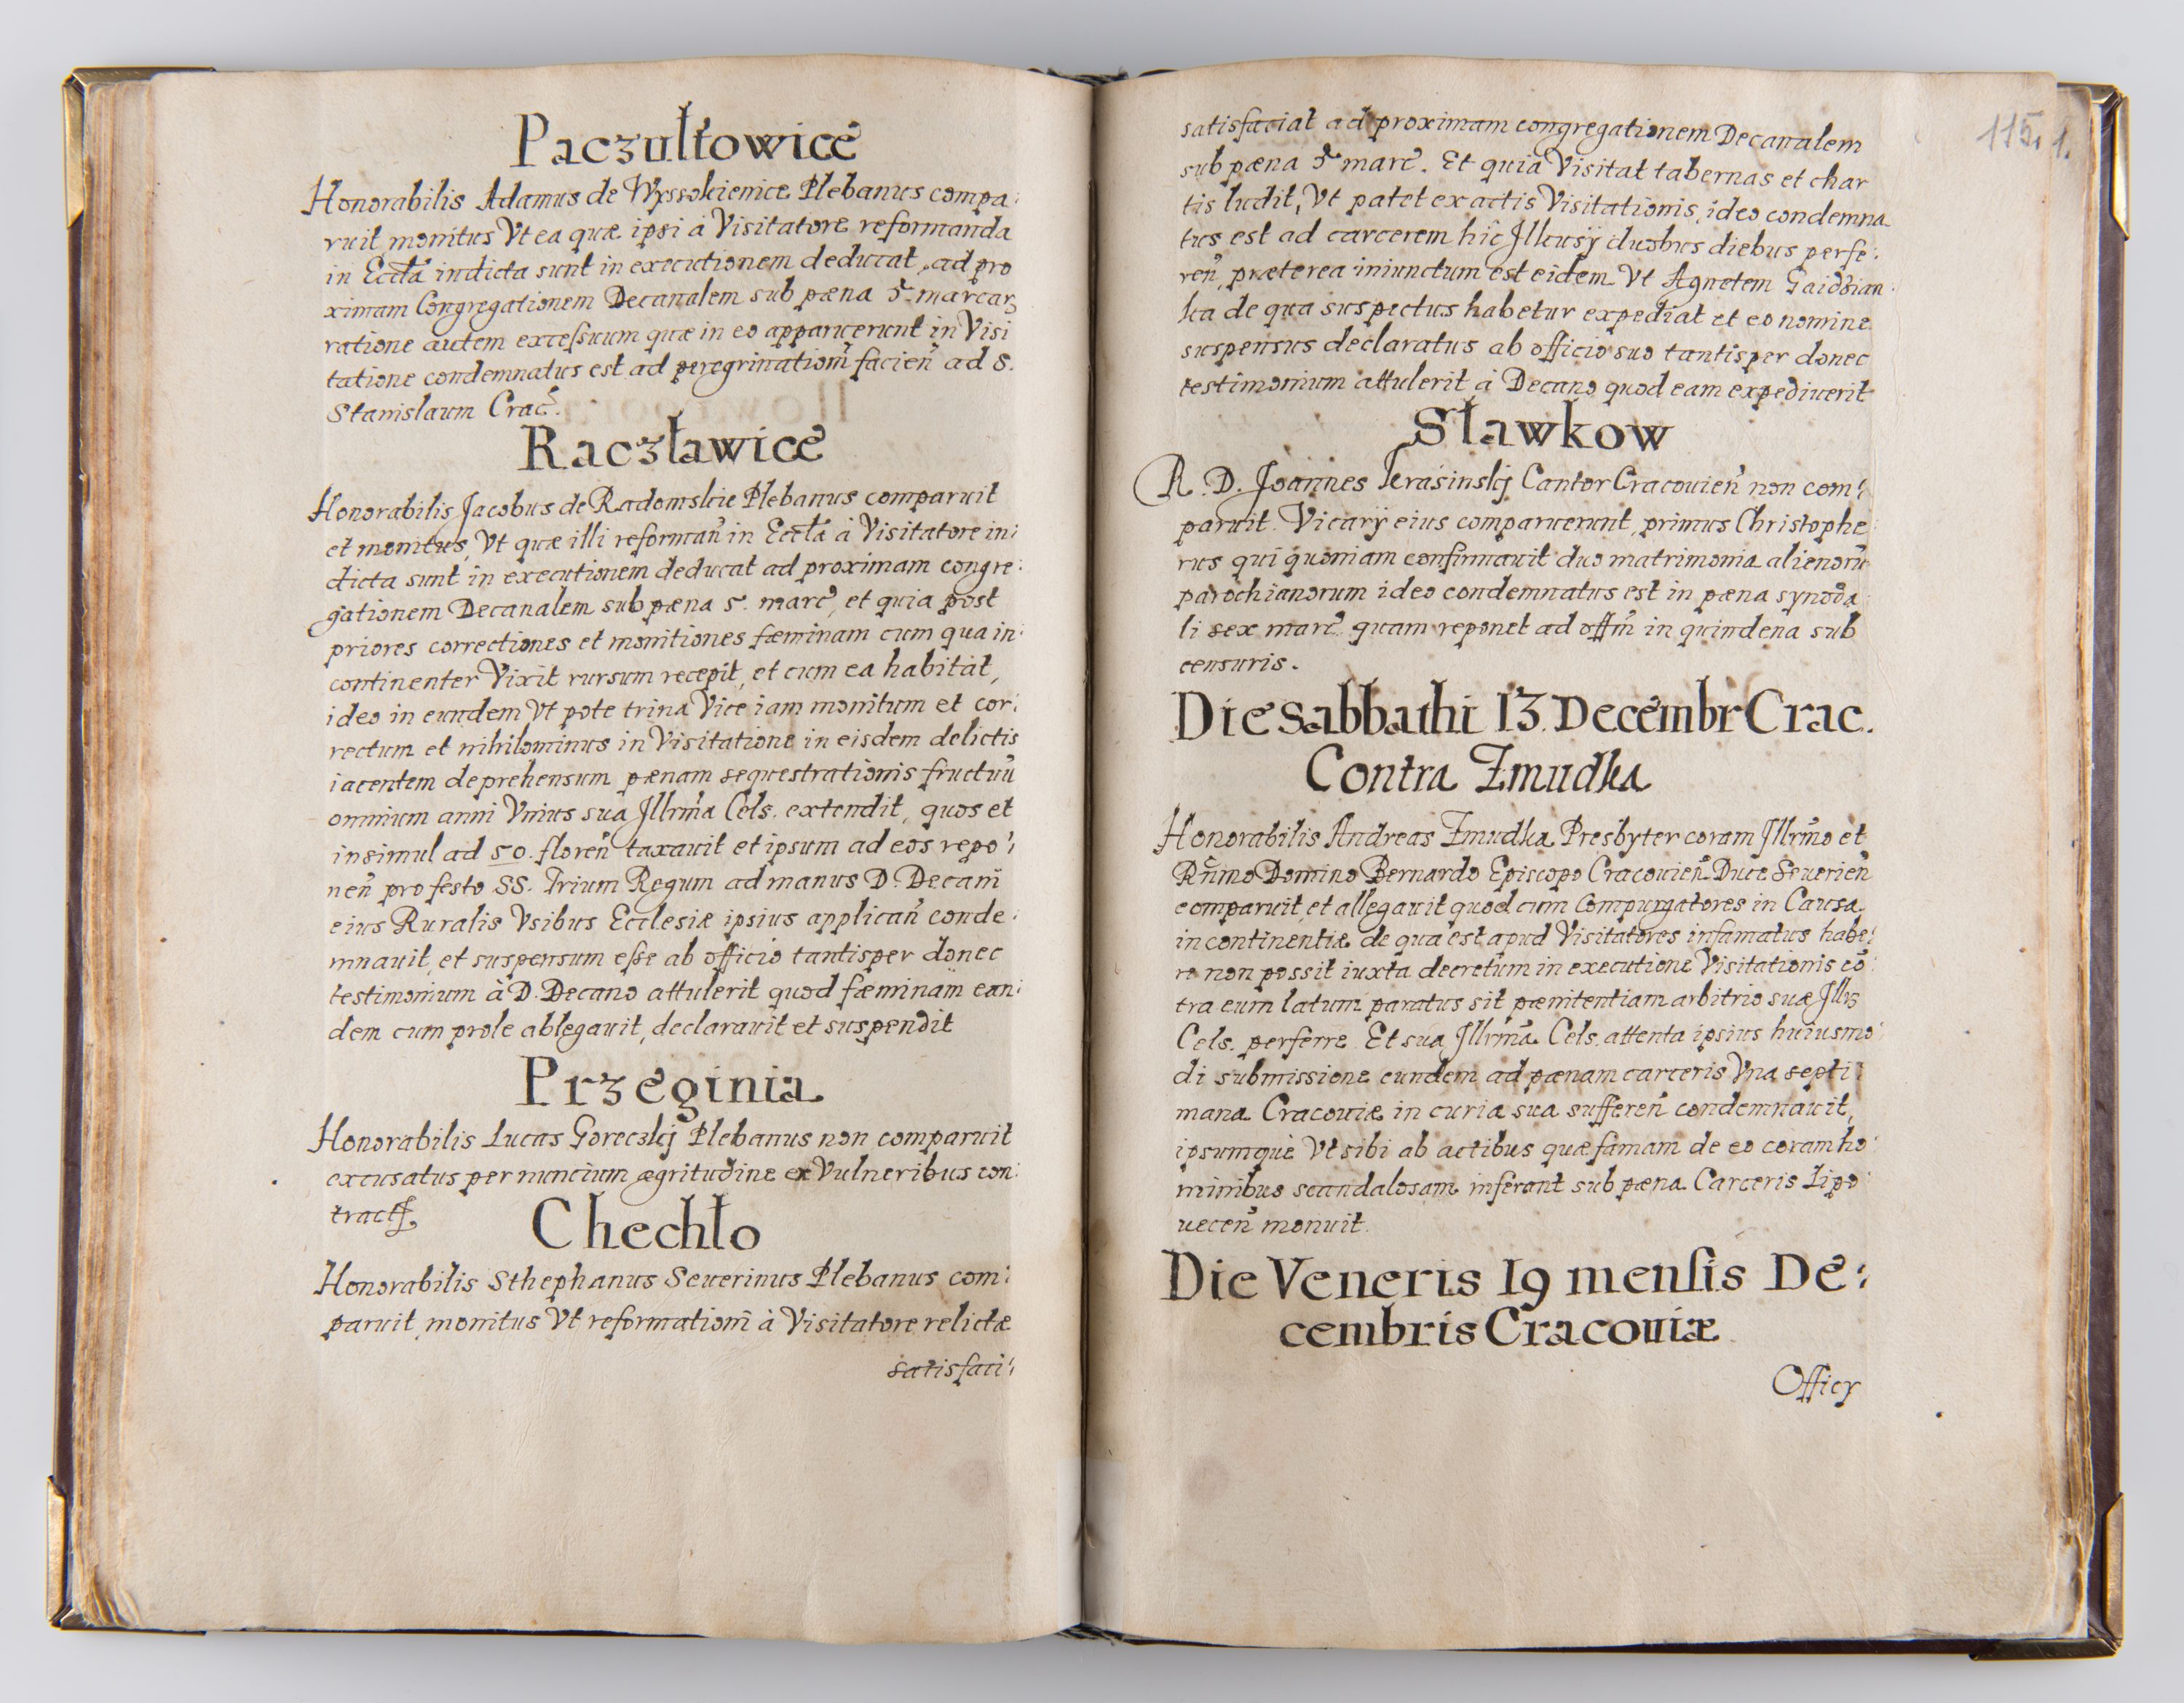 Paczułtowice
Honorabilis Adamus de Wyssokienice Plebanus compa:
ruit monitus Vt ea quæ ipsi à Visitatore reformanda
in Eccłã indicta sunt in executionem deducat, ad pro
ximam Congregationem Decanalem sub pæna 5 marcarꝫ
ratione autem excessuum quæ in eo apparuerunt in Visi
tatione condemnatus est ad peregrinatiom̃ facień ad S.
Stanislaum Crac̃.
Raczławice
Honorabilis Jacobus de Radomskie Plebanus comparuit
et monitus, Vt quæ illi reformań in Eccłã à Visitatore in:
dicta sunt in executionem deducat ad proximam congre:
gationem Decanalem sub pæna 5. marc̃, et quia post
priores correctiones et monitiones fæminam cum qua in:
continenter Vixit rursum recepit, et cum ea habitat,
ideo in eundem Vt pote trina Vice iam monitum et cor:
rectum et nihilominus in Visitatione in eisdem delictis
iacentem deprehensum pænam sequestrationis fructuũ
omnium anni Vnius sua Jllrm̃a Cels. extendit, quos et
insimul ad 50. floreñ taxauit et ipsum ad eos repo:
neñ pro festo SS. Trium Regum ad manus D. Decani
eius Ruralis Vsibus Ecclesiæ ipsius applicañ conde:
mnauit, et suspensum esse ab officio tantisper donec
testimonium à D. Decano attulerit quod fæminam ean:
dem cum prole ablegauit, declarauit et suspendit
Przeginia
Honorabilis Lucas Goreczkj Plebanus non comparuit
excusatus per nuncium ægritudine ex Vulneribus con:
tractꝭ.
Chechło
Honorabilis Sthephanus Seuerinus Plebanus com:
paruit monitus Vt reformationi à Visitatore relictæ
satisfaci:
115. 1.
satisfaciat ad proximam congregationem Decanalem
sub pæna 5 marc̃. Et quia Visitat tabernas et char
tis ludit, Vt patet ex actis Visitationis, ideo condemna
tus est ad carcerem hîc Jllcusÿ duobus diebus perfe:
reñ, præterea iniunctum est eidem Vt Agnetem Gaidzian:
ka de qua suspectus habetur expediat et eo nomine
suspensus declaratus ab officio suo tantisper donec
testimonium attulerit à Decano quod eam expediuerit
Sławkow
R. D. Joannes Krasinskj Cantor Cracouieñ non com:
paruit. Vicarÿ eius comparuerunt, primus Christophe:
rus qui quoniam confirmauit duo matrimonia alienorũ
parochianorum ideo condemnatus est in pæna synoda
li sex marc̃ quam reponet ad offm̃ in quindena sub
censuris.
Die Sabbathi 13 Decembr Crac.
Contra Zmudka
Honorabilis Andreas Zmudka Presbyter coram Jllrm̃o et
Rñmo Domino Bernardo Episcopo Cracouieñ Duce Seuerieñ
comparuit et allegauit quod cum Compurgatores in Causa
incontinentiæ de qua est apud Visitatores infamatus habe:
re non possit iuxta decretum in executione Visitationis cõ:
tra eum latum paratus sit pænitentiam arbitrio suæ Jllrꝫ
Cels. perferre. Et sua Jllrm̃a Cels. attenta ipsius huiusmo:
di submissione eundem ad pænam carceris Vna septi:
mana Cracouiæ in curia sua suffereñ condemnauit,
ipsumquè Vt sibi ab actibus quæ famam de eo coram ho:
minibus scandalosam inferant sub pæna Carceris Lipo:
ueceñ monuit.
Die Veneris 19 mensis De:
cembris Cracouiæ
Officy